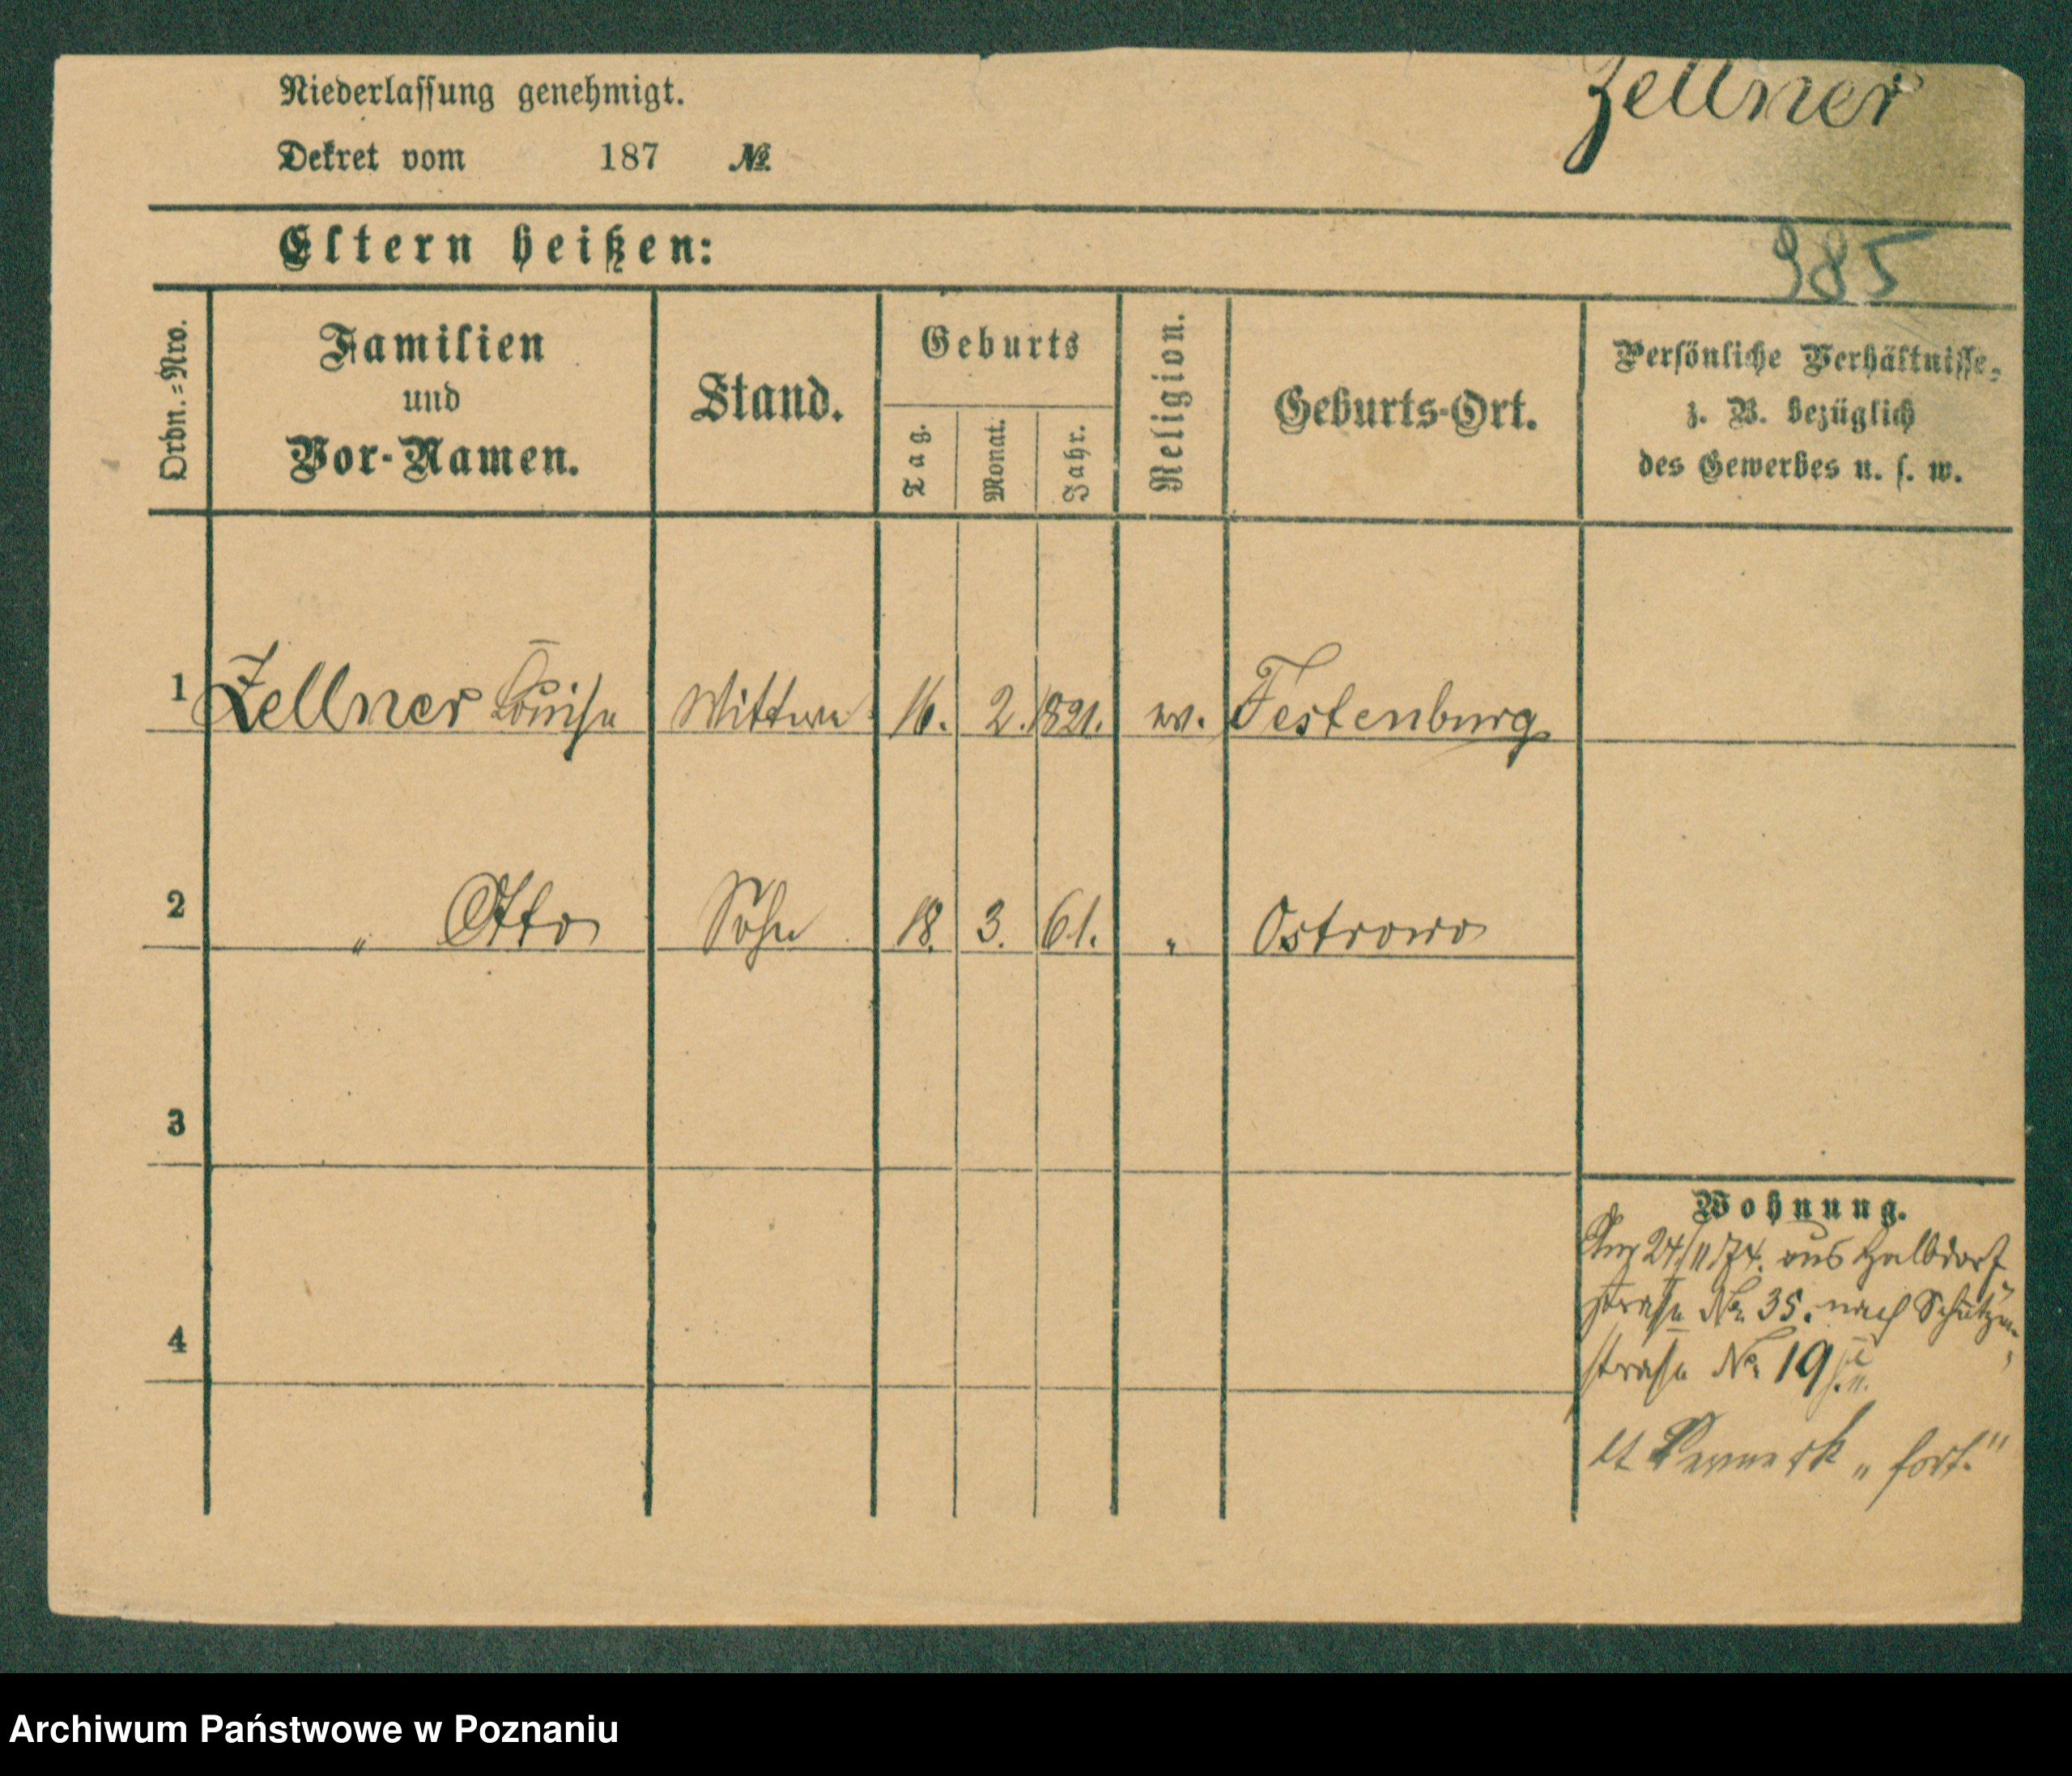 Niederlassung genehmigt.
Zellner
Dekret vom 187 №
Eltern heißen:
985
Ordn.=Nro.
Familien
und
Vor-Namen.
Stand.
Geburts
Tag.
Monat.
Jahr.
Religion.
Geburts-Ort.
Persönliche Verhältnisse,
z. B. bezüglich
des Gewerbes u. s. w.
1 Zellner Louise Wittwe 16. 2. 1821. ev. Festenburg
2 „ Otto Sohn 18. 3. 61. „ Ostrowo
3
4
Wohnung.
24/11/74. aus Halbdorf
straße No 35. nach Schützen-
straße No 19
lt Vermerk „fort."
Archiwum Państwowe w Poznaniu